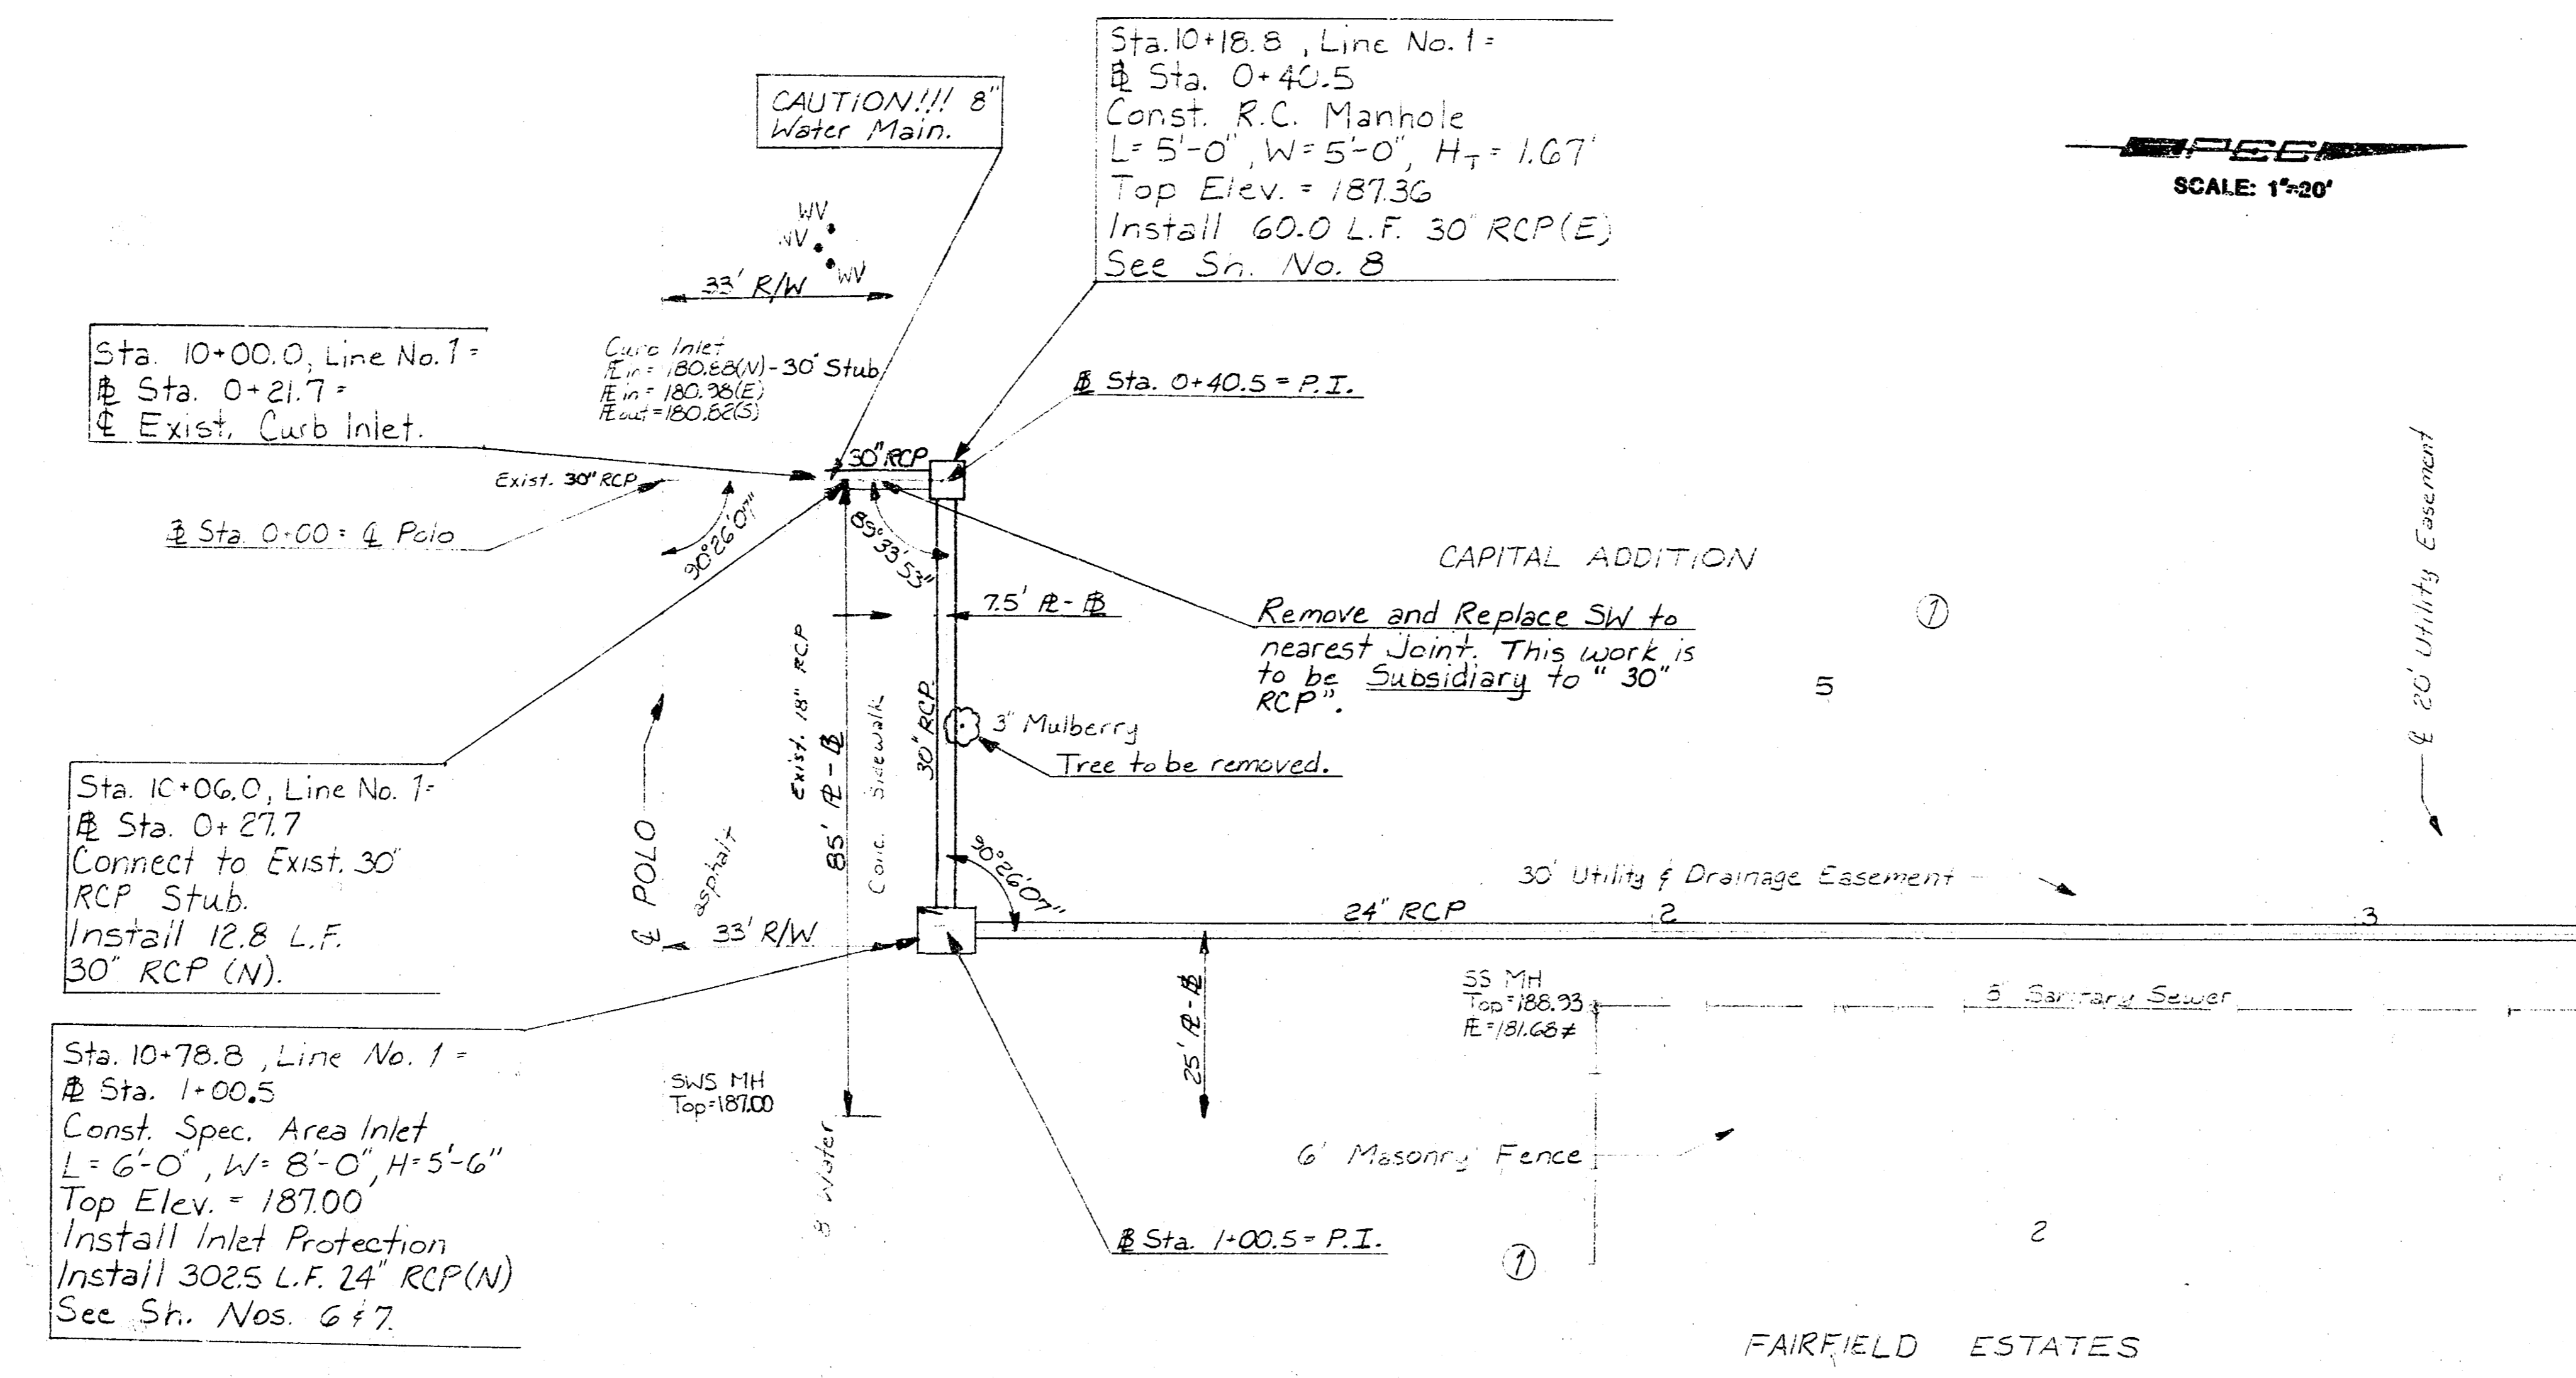 Sta. 10+18.8 , Line No. 1 =
B̶L Sta. 0+40.5
Const. R.C. Manhole
L= 5'-0" , W= 5'-0", H_T = 1.67'
Top Elev. = 187.36
Install 60.0 L.F. 30" RCP(E)
See Sh. No. 8
CAUTION!!! 8"
Water Main.
SCALE: 1"=20'
WV
WV
WV
33' R/W
Sta. 10+00.0, Line No. 1 =
B̶L Sta. 0+21.7 =
℄ Exist. Curb Inlet.
Curb Inlet
FL in = 180.88(N)-30" Stub
FL in = 180.98(E)
FL out = 180.82(S)
B̶L Sta. 0+40.5 = P.I.
30" RCP
Exist. 30" RCP
B̶L Sta. 0+00 = ℄ Polo
90°26'07"
89°33'53"
℄ 20' Utility Easement
CAPITAL ADDITION
7.5' PL - BL
Remove and Replace SW to
nearest Joint. This work is
to be Subsidiary to "30"
RCP".
1
5
Exist. 18" RCP
85' PL - BL
Conc. Sidewalk
30" RCP
3" Mulberry
Tree to be removed.
Sta. 10+06.0, Line No. 1=
B̶L Sta. 0+27.7
Connect to Exist. 30"
RCP Stub.
Install 12.8 L.F.
30" RCP (N).
℄ POLO
asphalt
33' R/W
90°26'07"
30' Utility & Drainage Easement
24" RCP
2
3
25' PL - BL
SS MH
Top=188.93
FL=181.68±
8" Sanitary Sewer
Sta. 10+78.8 , Line No. 1 =
B̶L Sta. 1+00.5
Const. Spec. Area Inlet
L= 6'-0" , W= 8'-0", H=5'-6"
Top Elev. = 187.00
Install Inlet Protection
Install 302.5 L.F. 24" RCP(N)
See Sh. Nos. 6 & 7.
SWS MH
Top=187.00
8" Water
6' Masonry Fence
B̶L Sta. 1+00.5 = P.I.
1
2
FAIRFIELD ESTATES